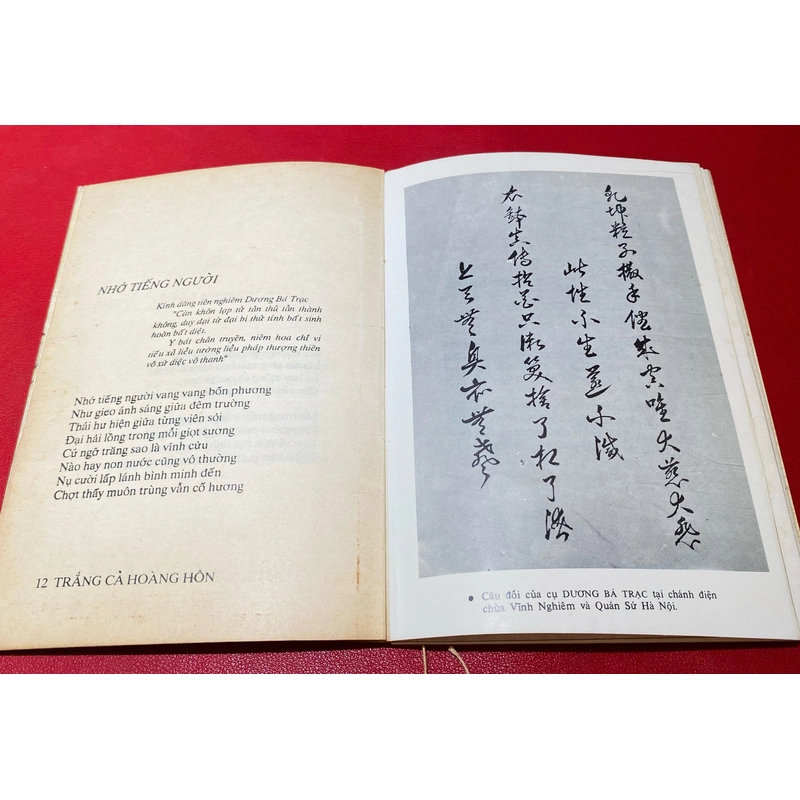 NHỚ TIẾNG NGƯỜI
Kính dâng tiên nghiêm Dương Bá Trạc
"Càn khôn lạp tử tản thủ tẫn thành
không, duy đại từ đại bi thử tính bất sinh
hoàn bất diệt.
Y bát chân truyền, niêm hoa chỉ vi
tiếu xả liễu tướng liễu pháp thượng thiên
vô xử diệc vô thanh"
Nhớ tiếng người vang vang bốn phương
Như gieo ánh sáng giữa đêm trường
Thái hư hiện giữa từng viên sỏi
Đại hải lồng trong mỗi giọt sương
Cứ ngỡ trăng sao là vĩnh cửu
Nào hay non nước cũng vô thường
Nụ cười lấp lánh bình minh đến
Chợt thấy muôn trùng vẫn cố hương
12 TRẮNG CẢ HOÀNG HÔN
乾坤粒子撒手儘成空唯大慈大悲
此性不生還不滅
衣鉢真傳拈花只微笑捨了相了法
上天無臭亦無聲
● Câu đối của cụ DƯƠNG BÁ TRẠC tại chánh điện
chùa Vĩnh Nghiêm và Quán Sứ Hà Nội.